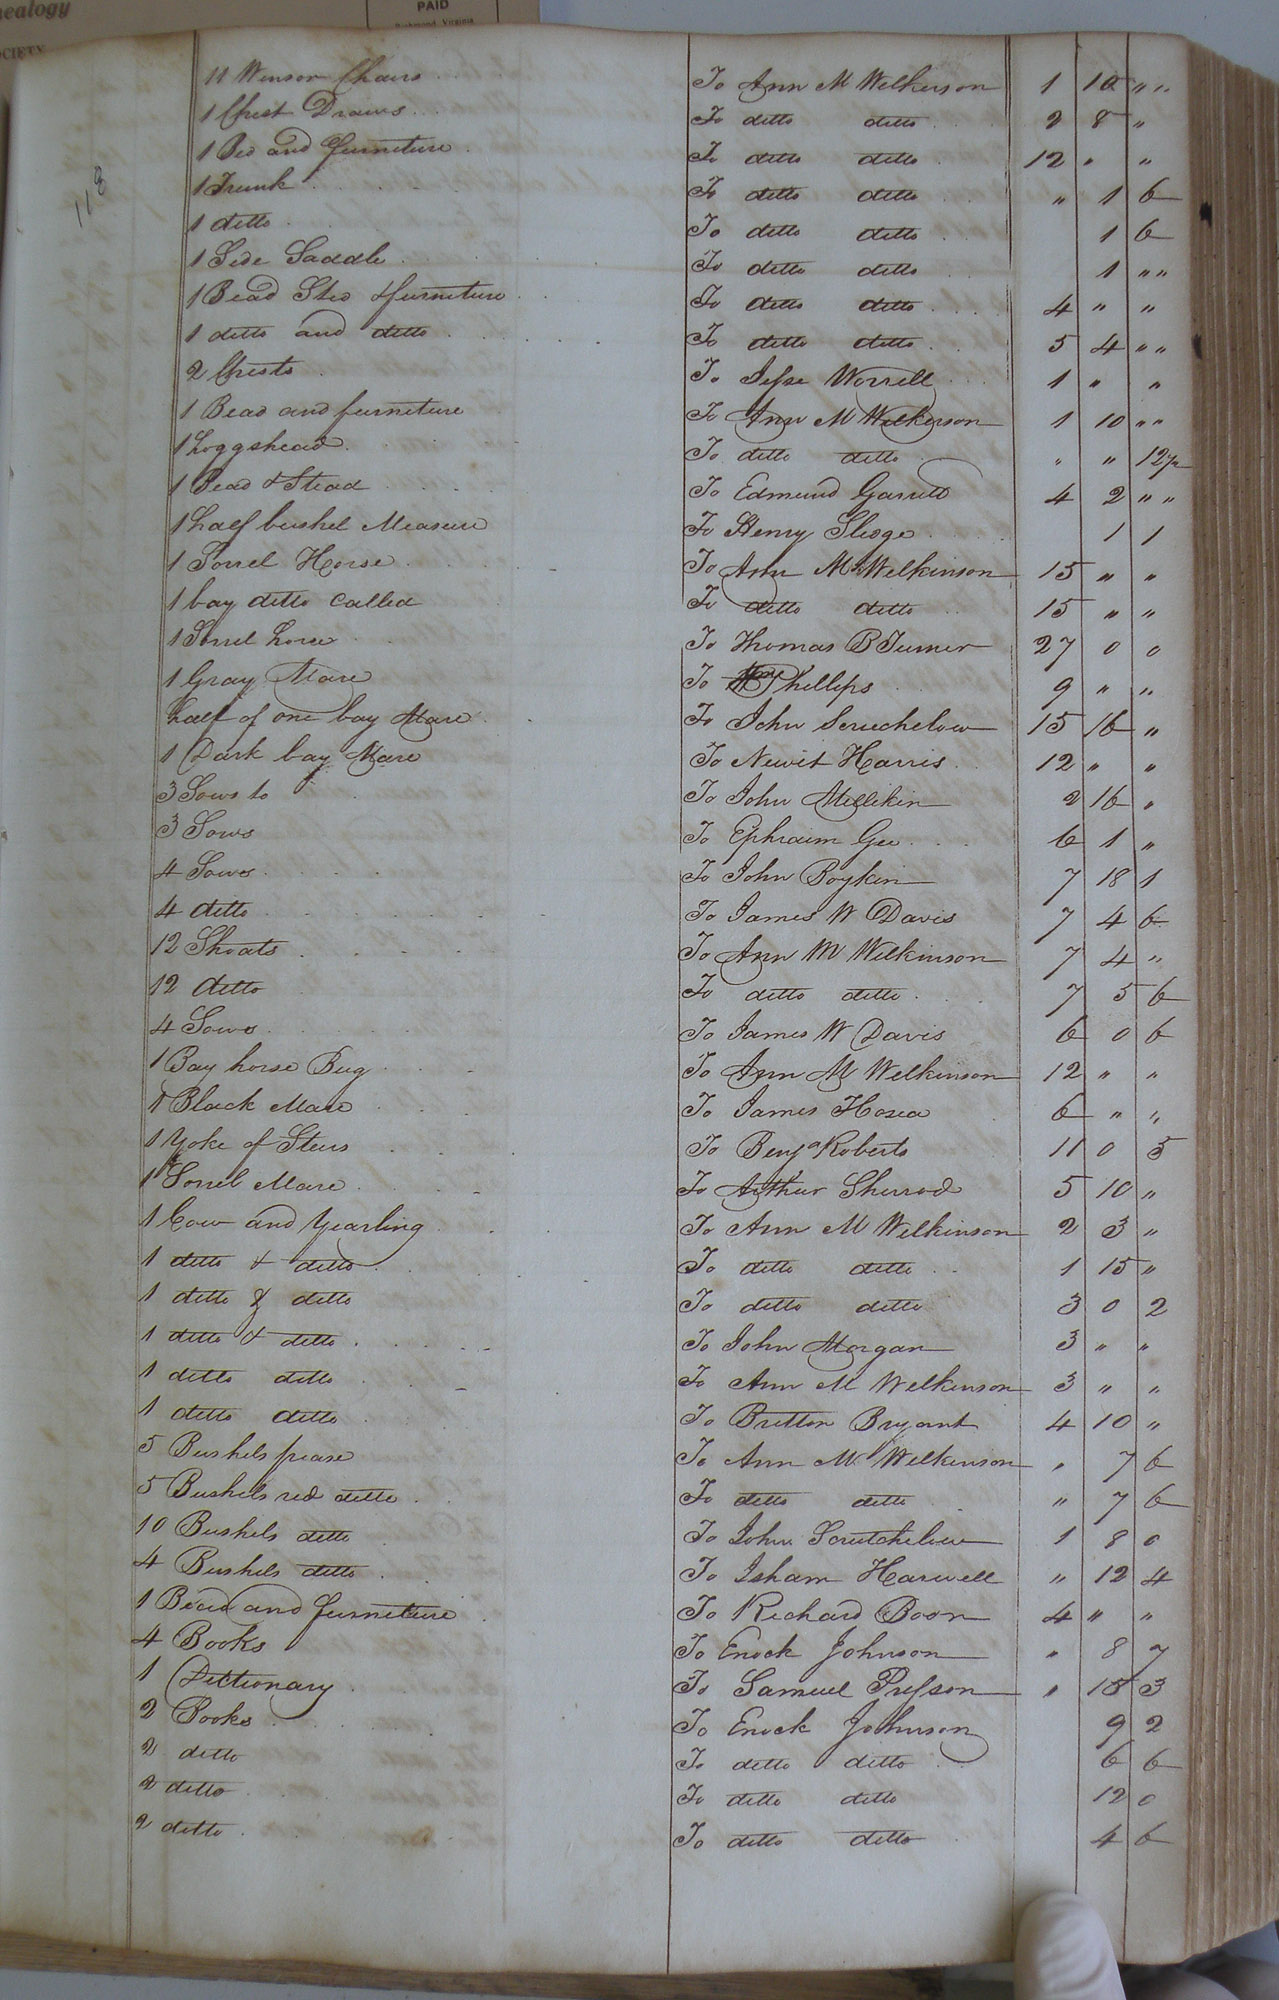 nealogy
OCIETY
PAID
Richmond, Virginia
118
11 Winsor Chairs To Ann M Wilkerson 1 10 " "
1 Chest Draws To ditto ditto 2 8 "
1 Bed and furniture To ditto ditto 12 " "
1 Trunk To ditto ditto " 1 6
1 ditto To ditto ditto 1 6
1 Side Saddle To ditto ditto 1 " "
1 Bead Sted & furniture To ditto ditto 4 " "
1 ditto and ditto To ditto ditto 5 4 " "
2 Chests To Jesse Worrell 1 " "
1 Bead and furniture To Ann M Wilkerson 1 10 " "
1 hoggshead To ditto ditto " " 12
1 Bead & Stead To Edmund Garrett 4 2 " "
1 half bushel Measure To Henry Sledge 1 1
1 Sorrel Horse To Ann M Wilkinson 15 " "
1 bay ditto called To ditto ditto 15 " "
1 Sorrel horse To Thomas B Turner 27 0 0
1 Gray Mare To Phillips 9 " "
half of one bay Mare To John Scruchelow 15 16 "
1 Dark bay Mare To Newit Harris 12 " "
3 Sows to To John Millikin 2 16 "
3 Sows To Ephraim Gee 6 1 "
4 Sows To John Boykin 7 18 1
4 ditto To James W Davis 7 4 6
12 Shoats To Ann M Wilkinson 7 4 "
12 ditto To ditto ditto 7 5 6
4 Sows To James W Davis 6 0 6
1 Bay horse Bug To Ann M Wilkinson 12 " "
1 Black Mare To James Hosea 6 " "
1 Yoke of Steers To Benja Roberts 11 0 5
1 Sorrel Mare To Arthur Sherrod 5 10 "
1 Cow and Yearling To Ann M Wilkinson 2 3 "
1 ditto & ditto To ditto ditto 1 15 "
1 ditto & ditto To ditto ditto 3 0 2
1 ditto & ditto To John Morgan 3 " "
1 ditto ditto To Ann M Wilkinson 3 " "
1 ditto ditto To Britton Bryant 4 10 "
5 Bushels pease To Ann M Wilkinson " 7 6
5 Bushels red ditto To ditto ditto " 7 6
10 Bushels ditto To John Scrutchelow 1 8 0
4 Bushels ditto To Isham Harwell " 12 4
1 Bead and furniture To Richard Boon 4 " "
4 Books To Enock Johnson " 8 7
1 Dictionary To Samuel Presson " 15 3
2 Books To Enock Johnson 9 2
2 ditto To ditto ditto 6 6
2 ditto To ditto ditto 12 0
2 ditto To ditto ditto 4 6